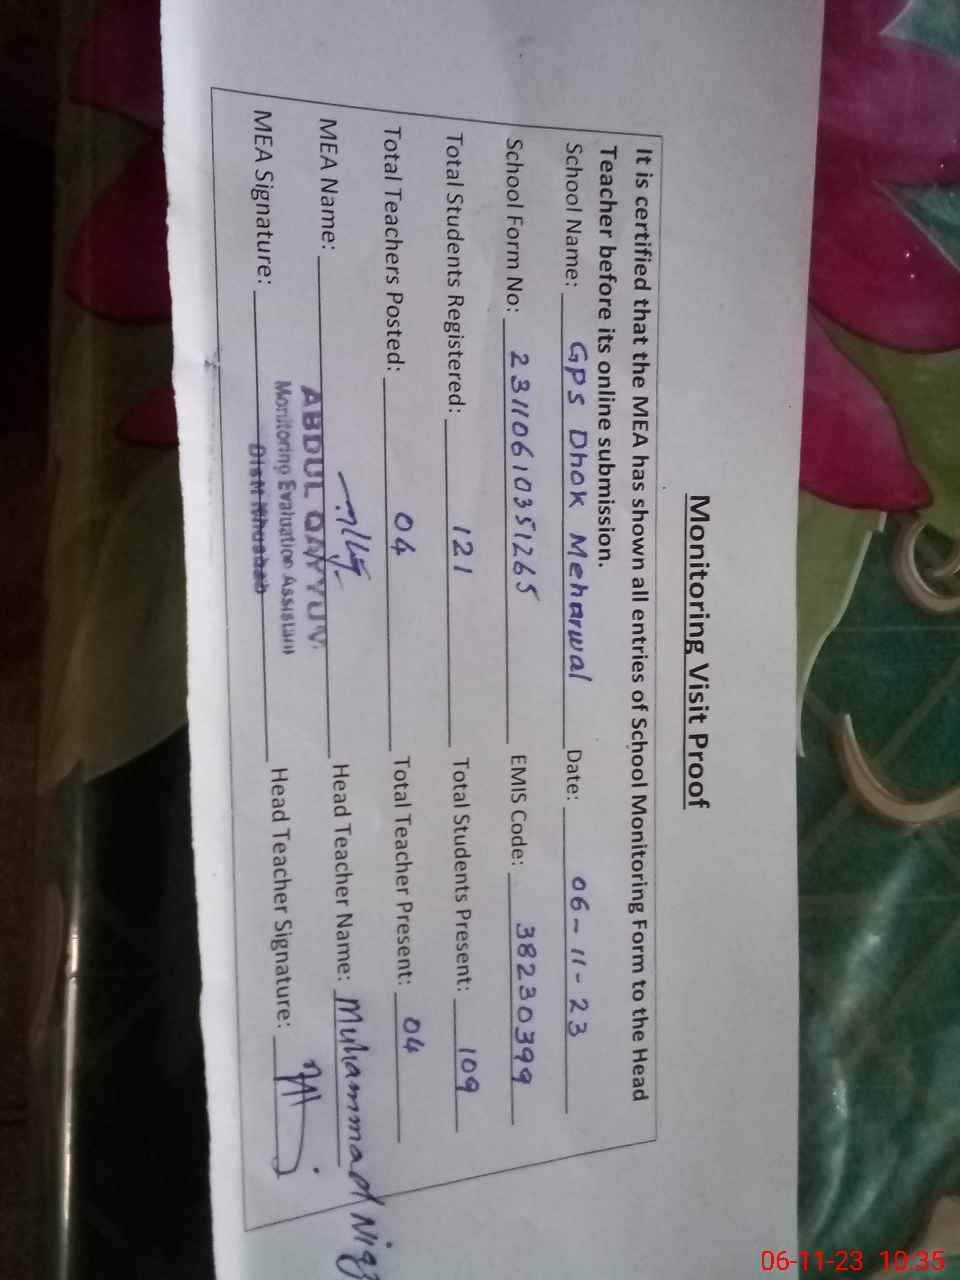 Monitoring Visit Proof
It is certified that the MEA has shown all entries of School Monitoring Form to the Head
Teacher before its online submission.
School Name: GPS Dhok Meharwal Date: 06-11-23
School Form No: 23110610351265 EMIS Code: 38230399
Total Students Registered: 121 Total Students Present: 109
Total Teachers Posted: 04 Total Teacher Present: 04
MEA Name: ABDUL QAYYUM Head Teacher Name: Muhammad
Monitoring Evaluation Assistant
MEA Signature: Distt Khushab Head Teacher Signature:
06-11-23 10:35